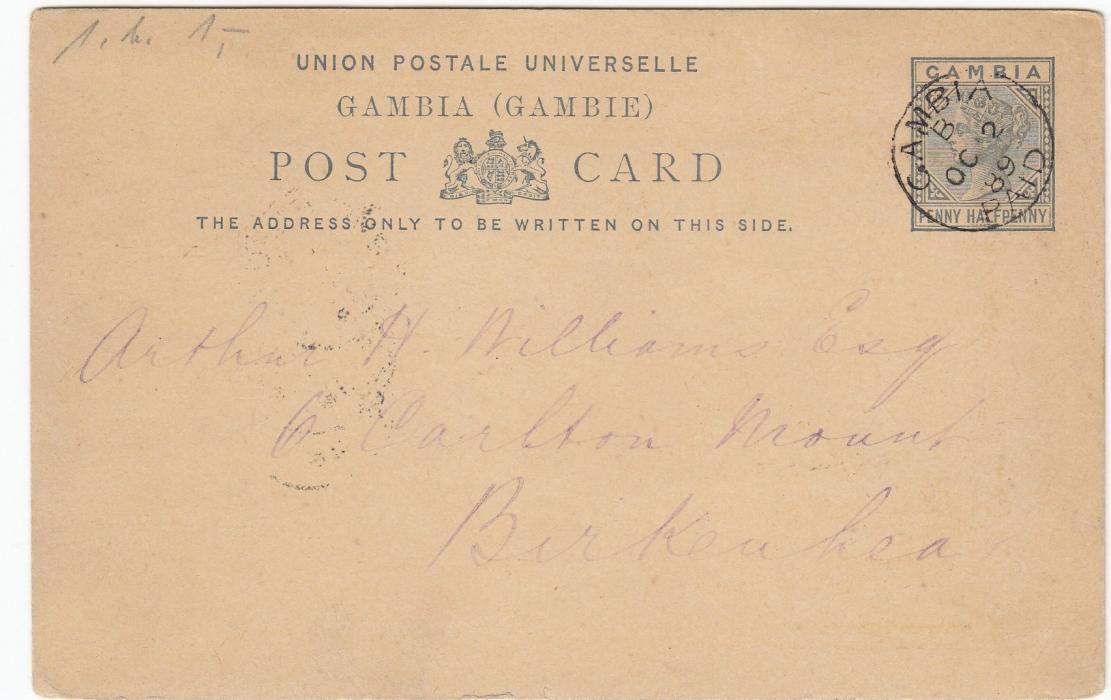 UNION POSTALE UNIVERSELLE
GAMBIA (GAMBIE)
POST CARD
THE ADDRESS ONLY TO BE WRITTEN ON THIS SIDE.
GAMBIA
PENNY HALFPENNY
GAMBIA
B
OC 2
89
PAID
Arthur H. Williams Esq
6 Carlton Mount
Birkenhea